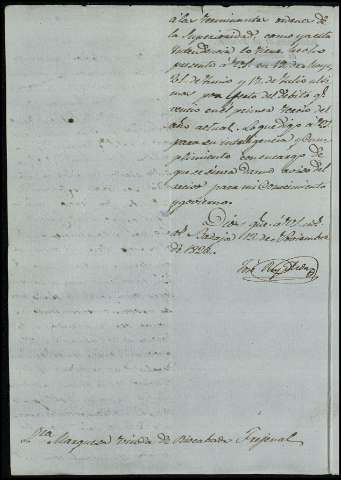 a las terminantes ordenes de
la Superioridad, como ya esta
Intendencia lo tiene hecho
presente á VS. en 12 de Mayo,
21 de Junio y 12 de Julio ulti-
mos por efecto del debito qe.
vencio en el primer tercio del
año actual. Lo que digo á VS.
para su inteligencia y cum-
plimiento con encargo de
que se sirva darme aviso del
recivo para mi conocimiento
y govierno.
Dios gue. á VS. ms.
as. Badajoz 12 de Noviembre
de 1824.
José
Sra. Marquesa viuda de Riocabado Frejenal